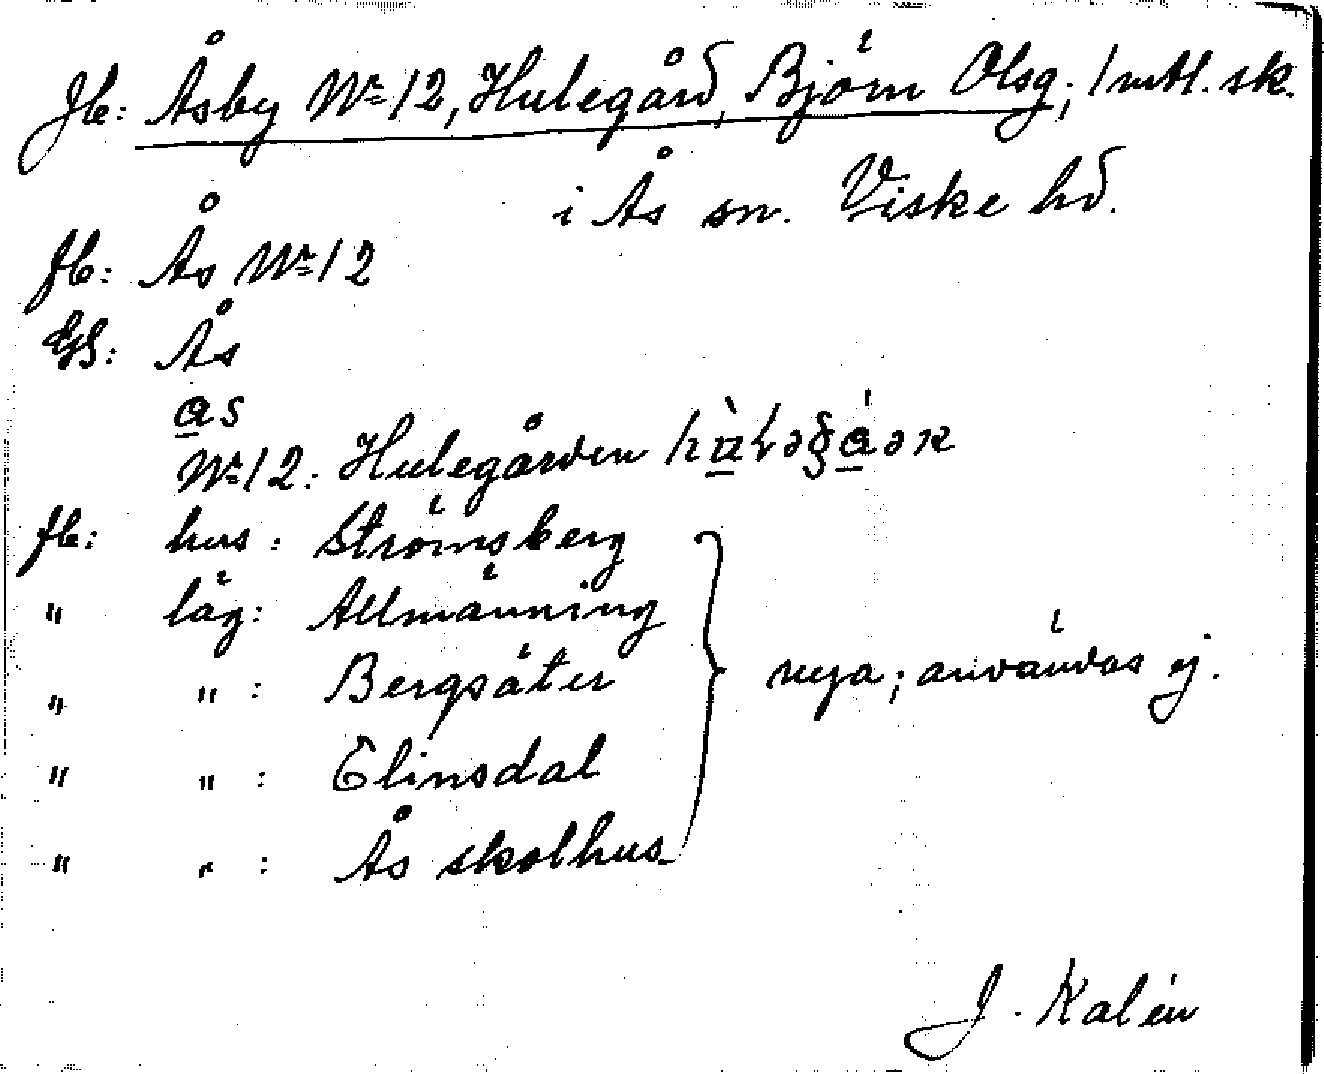 Jb: Åsby Nr 12, Hulegård, Björn Olsg; 1 mtl. sk.
i Ås sn. Viske hd.
fb: Ås Nr 12
GS: Ås
as
Nr 12: Hulegården
fb: hus: Strömsberg
" läg: Allmänning
" " : Bergsäter
" " : Elinsdal
" " : Ås skolhus
nya; användas ej.
J. Kalén